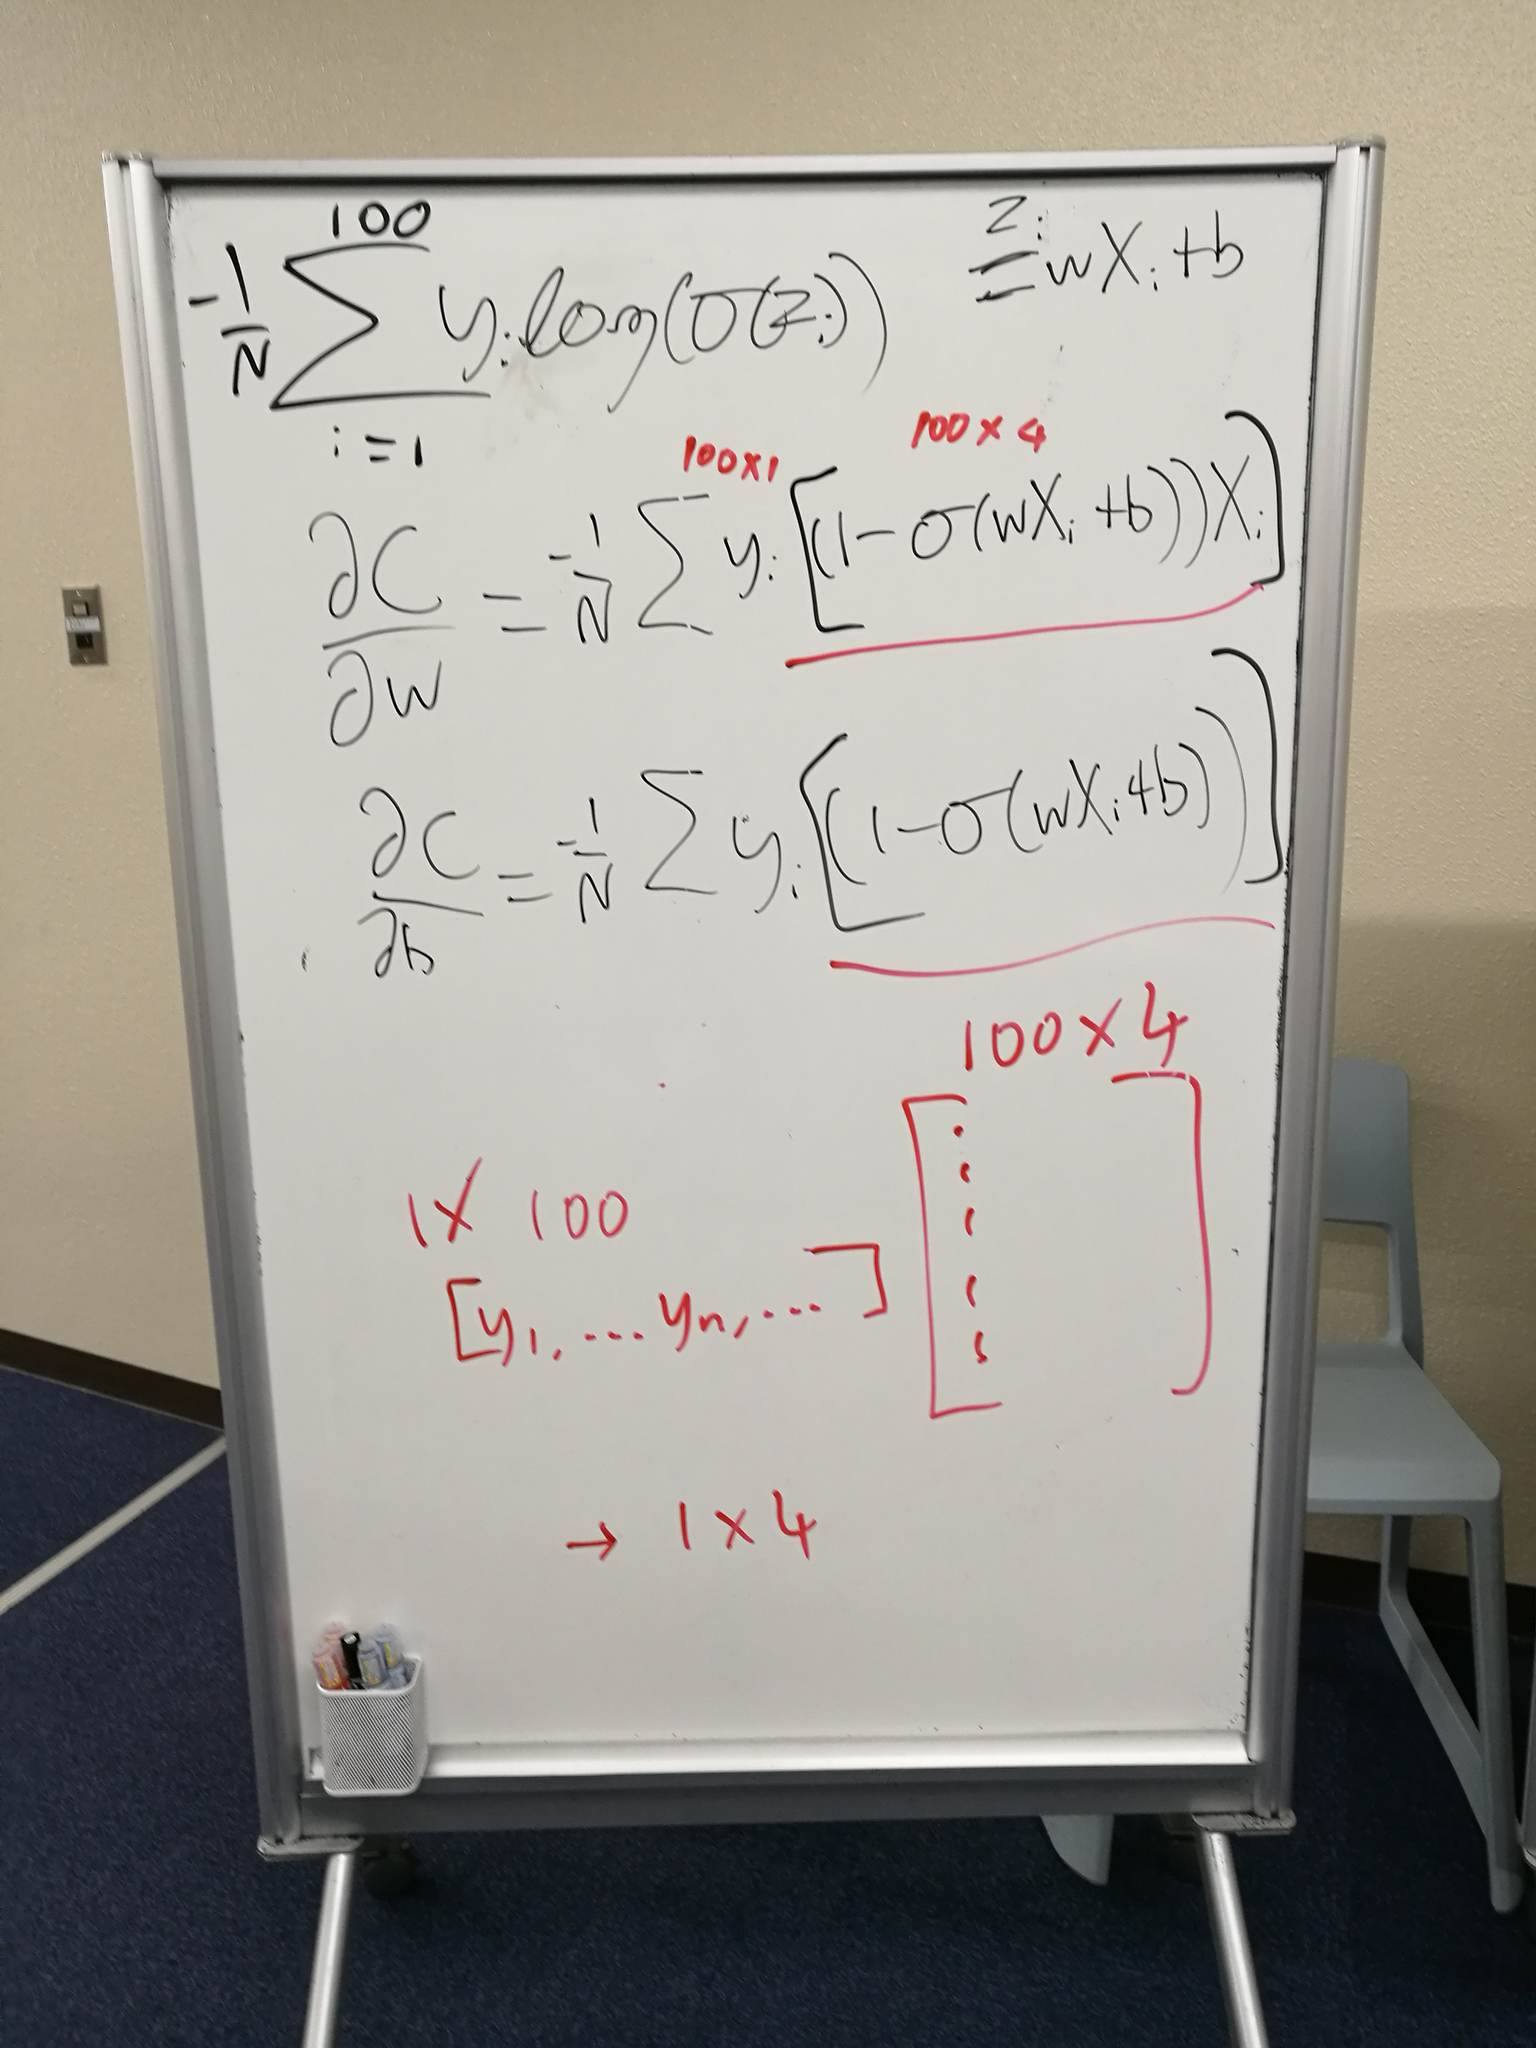 100
-1/N ∑ yᵢ log(σ(zᵢ))
i=1
zᵢ = wXᵢ + b
100×1 100×4
∂C/∂w = -1/N ∑ yᵢ [(1-σ(wXᵢ+b))Xᵢ]
∂C/∂b = -1/N ∑ yᵢ [(1-σ(wXᵢ+b))]
100×4
1× 100
[y₁, ... yₙ, ...]
→ 1×4